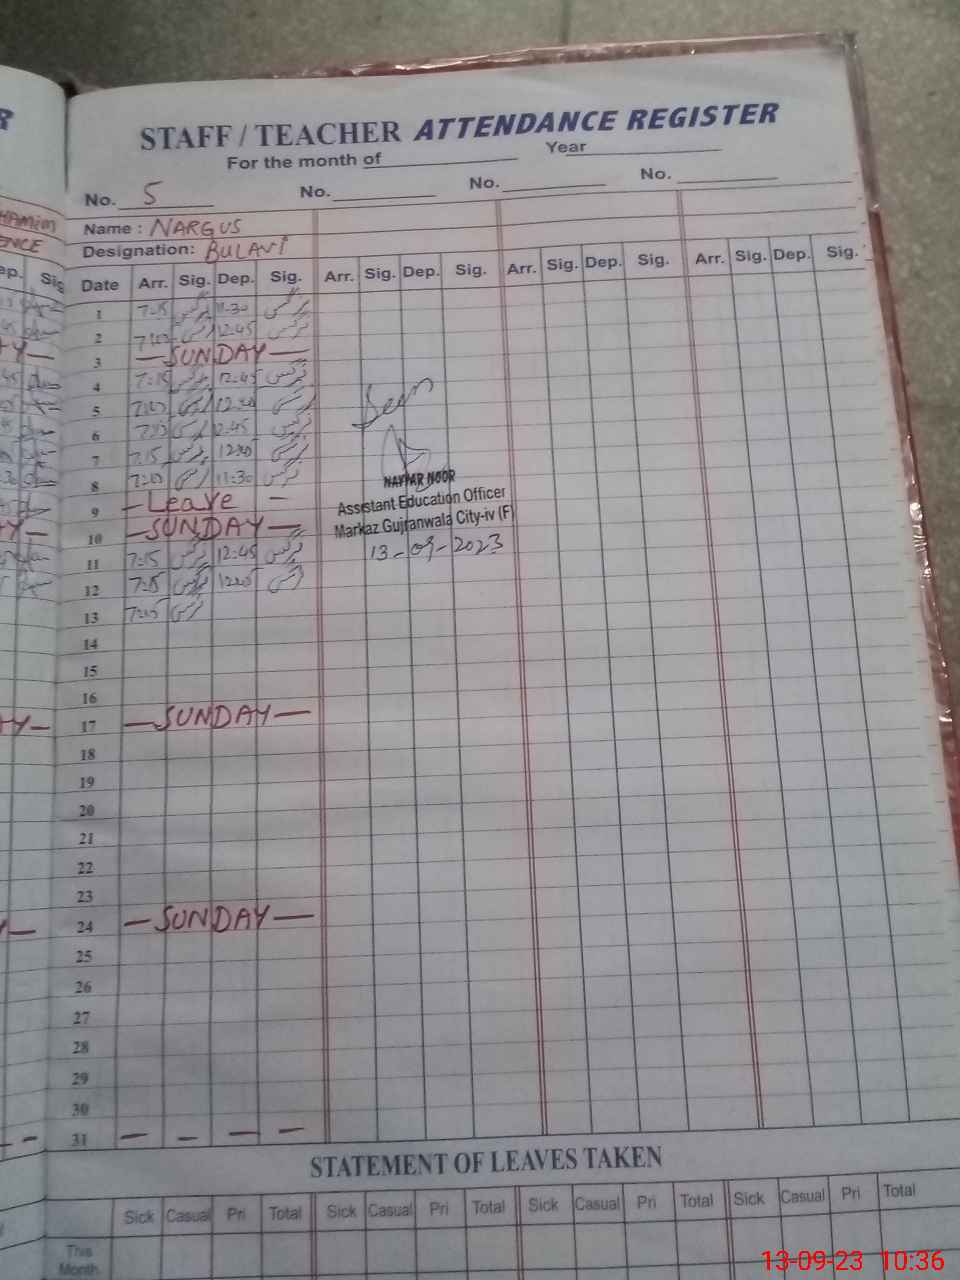 STAFF / TEACHER ATTENDANCE REGISTER
For the month of Year
No. 5 No. No. No.
Name : NARGUS
Designation: BULAVI
Date Arr. Sig. Dep. Sig. Arr. Sig. Dep. Sig. Arr. Sig. Dep. Sig. Arr. Sig. Dep. Sig.
1 7:15 نرگس 11:30 نرگس
2 نرگس 12:45 نرگس
3 — SUNDAY —
4 7:15 نرگس 12:45 نرگس
5 نرگس نرگس
6 نرگس 12:45 نرگس
7 7:15 نرگس نرگس
8 نرگس 11:30 نرگس
9 - Leave -
10 — SUNDAY —
11 7:15 نرگس 12:45 نرگس
12 7:15 نرگس نرگس
13 نرگس
14
15
16
17 — SUNDAY —
18
19
20
21
22
23
24 — SUNDAY —
25
26
27
28
29
30
31 — — — —
Seen
NAYYAR NOOR
Assistant Education Officer
Markaz Gujranwala City-iv (F)
13-09-2023
STATEMENT OF LEAVES TAKEN
Sick Casual Pri Total Sick Casual Pri Total Sick Casual Pri Total Sick Casual Pri Total
This
Month
13-09-23 10:36